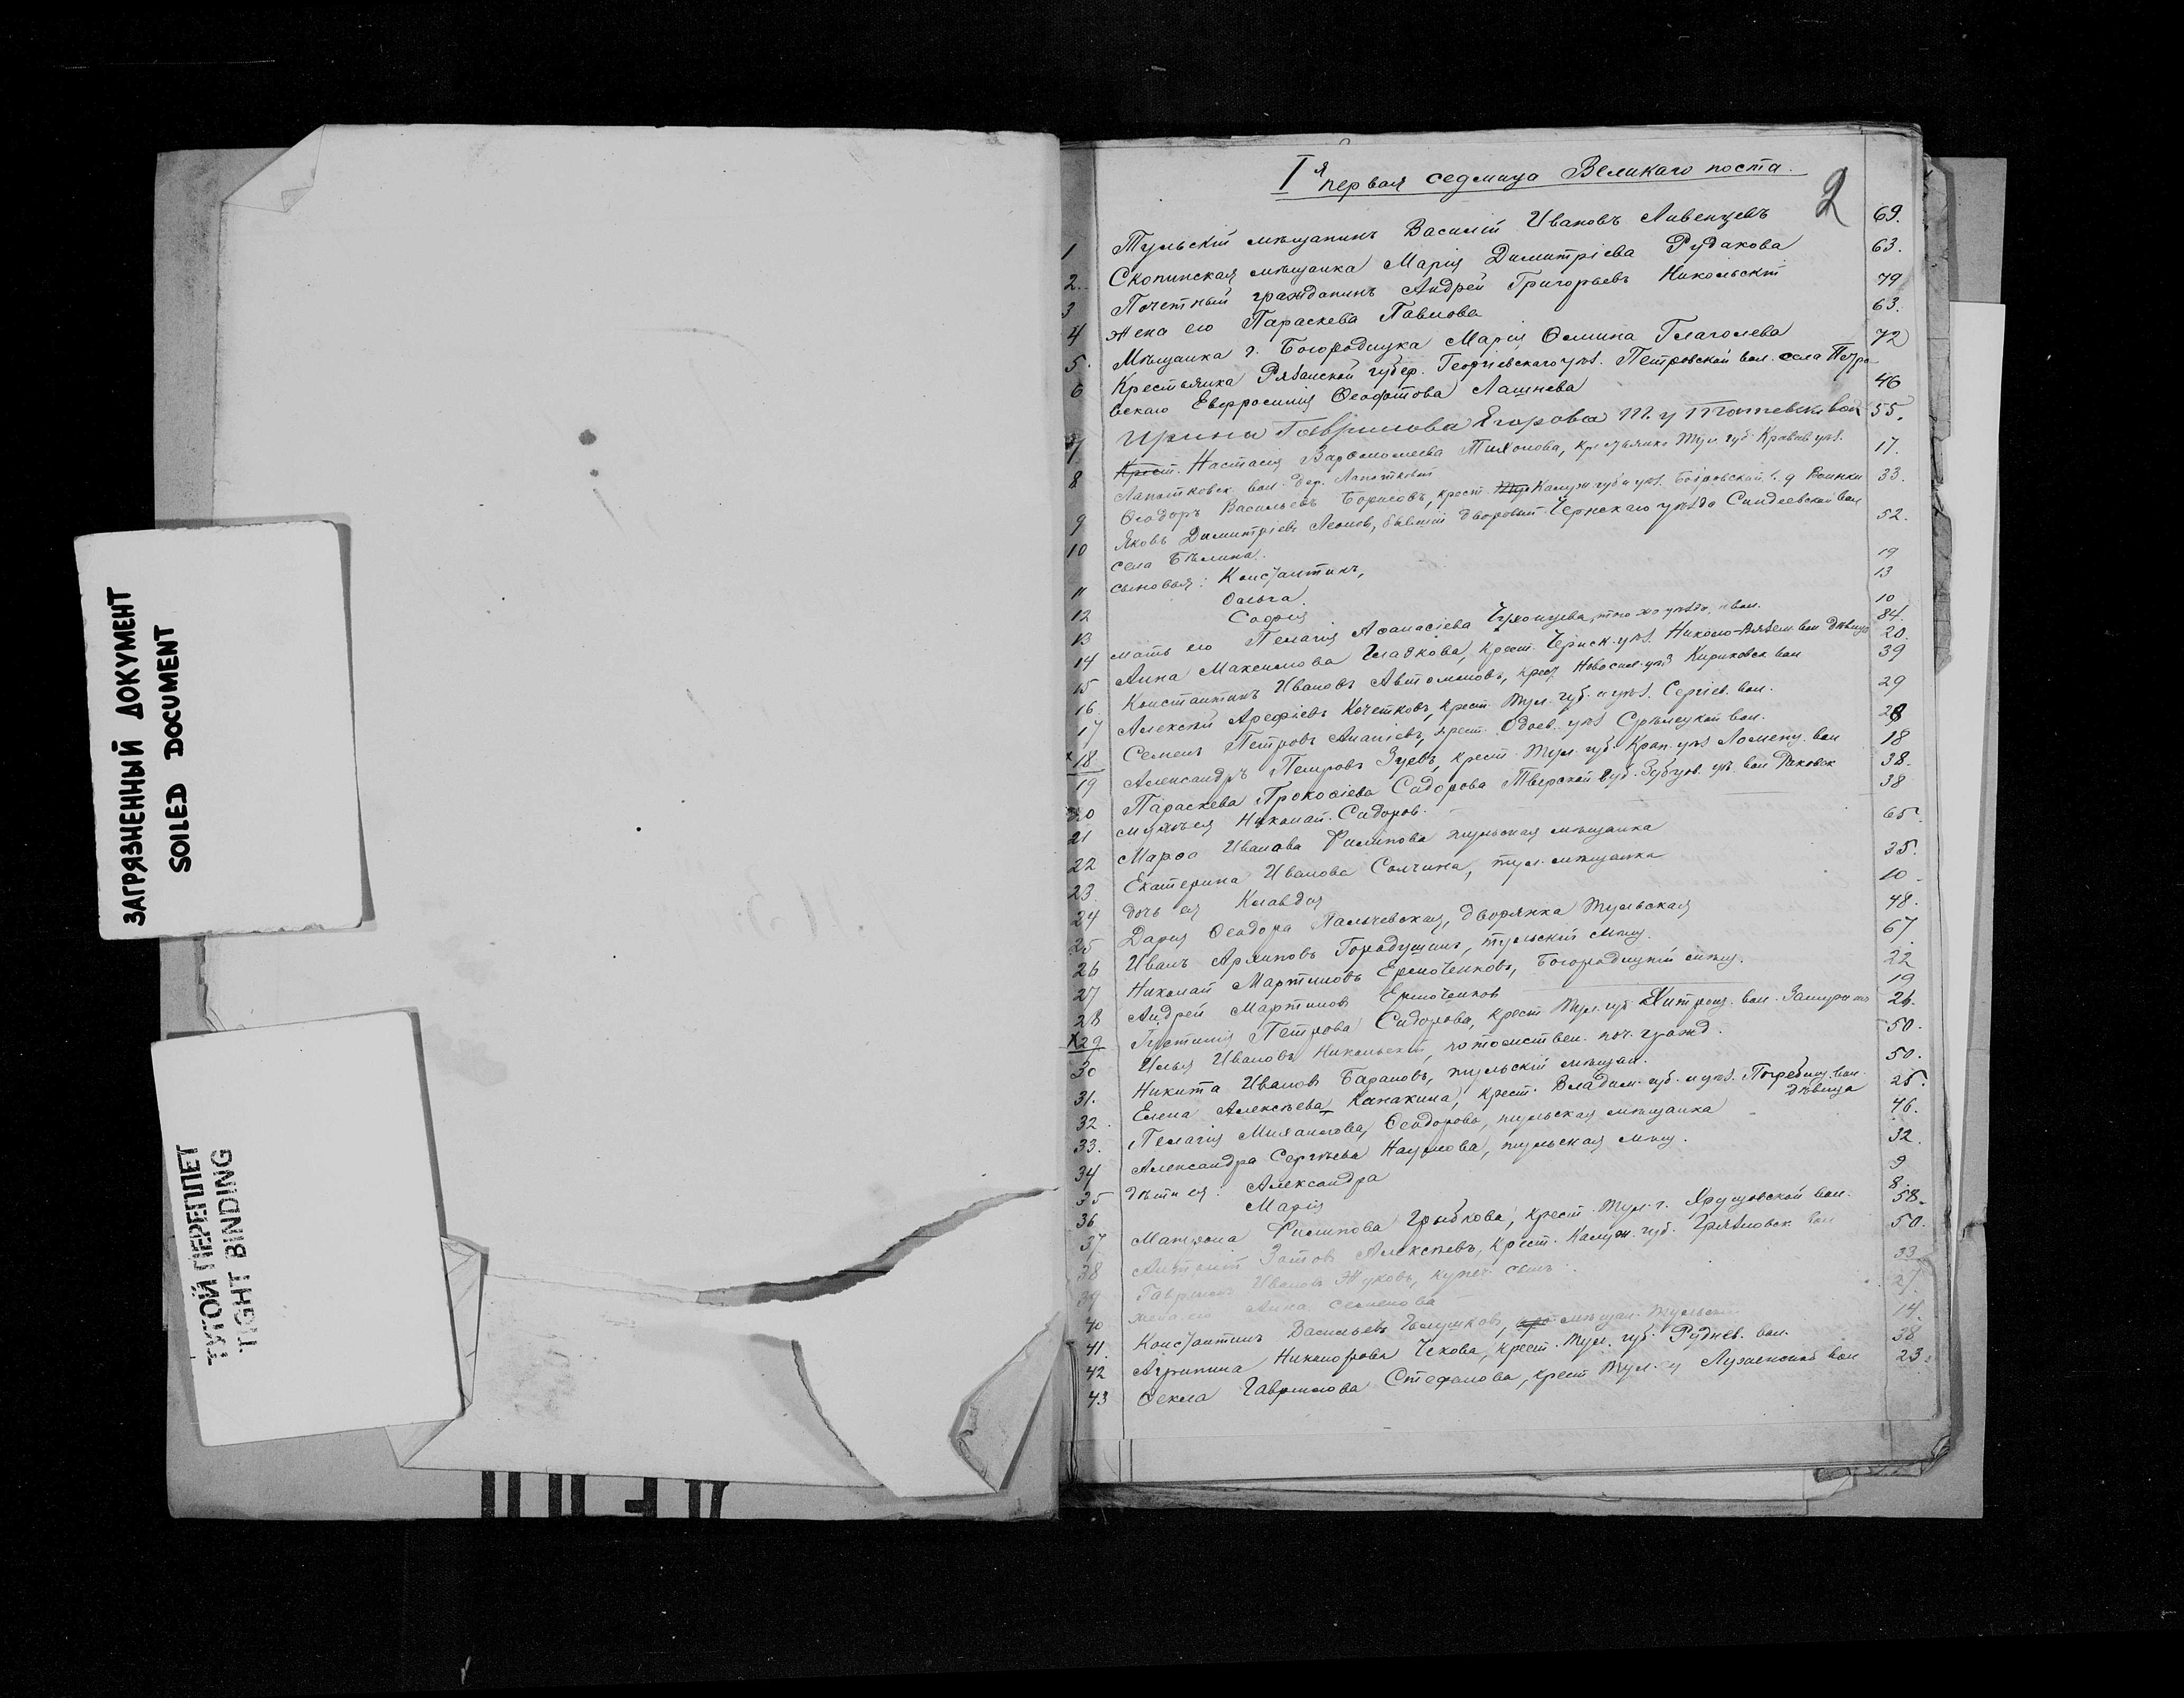 ЗАГРЯЗНЕННЫЙ ДОКУМЕНТ
SOILED DOCUMENT
ТУГОЙ ПЕРЕПЛЕТ
TIGHT BINDING
I я первая седмица Великаго поста.
2
1 Тульскій мѣщанинъ Василій Ивановъ Ливенцевъ 69.
2. Скопинская мѣщанка Марія Димитріева Рудакова 63.
3 Почетный гражданинъ Андрей Григорьевъ Никольскій 79
4 Жена его Параскева Павлова 63.
5. Мѣщанка г. Богородицка Марія Ѳомина Глаголева 72
6 Крестьянка Рязанской губер. Георгіевскаго уѣз. Петровской вол. села Петро
вскаго Евфросинія Ѳеофотова Лашнева 46
7 Ирина Гаврилова Егорова Т. у вол 55.
8 Крест. Настасія Варѳоломеева Тихонова, крестьянка Тул. губ. Крапив. уѣз. 17.
Лапотковск. вол. дер. Лапотковой
9 Ѳеодоръ Васильевъ Борисовъ, крест. Калуж. губ и уѣз. Бобровской в. д 33.
10 Яковъ Димитріевъ Леоновъ, бывшій дворовый Чернскаго уѣзда Синдеевской вол 52.
села Бѣлина.
11 сыновья: Константинъ, 19
12 Ольга 13
13 Софія 10
14 мать его Пелагія Аѳанасіева того же уѣзда, и вол. 84.
15 Анна Максимова Гладкова, крест. Чернск. уѣз. Николо-Вяземск. вол дѣвица 20.
16. Константинъ Ивановъ Автономовъ, крест. Новосил. уѣз Кириковск вол 39
17 Алексѣй Арефіевъ Кочетковъ, крест. Тул. губ. и уѣз. Сергіев. вол. 29
х 18 Семенъ Петровъ Ананіевъ, крест. Одоев. уѣз Стрѣлецкой вол. 28
19 Александръ Петровъ Зуевъ, крест. Тул. губ. Крап. уѣз вол 18
20 Параскева Прокофіева Сидорова Тверской губ. Зубцов. уѣ. вол Раковск 38.
21 мужъ ея Николай Сидоров. 38
22 Марѳа Иванова Филипова тульская мѣщанка 65.
23. Екатерина Иванова Солчина, тул. мѣщанка 35.
24 дочь ея Клавдія 10
25 Дарія Ѳеодора Пальчевская, дворянка Тульская 48.
26 Иванъ Архиповъ Городушинъ, тульскій мѣщ. 67
27 Николай Мартиновъ Ермоченковъ, Богородицкій мѣщ. 22
28 Андрей Мартинов Ермоченков 19
х 29 Іустинія Петрова Сидорова, крест Тул. губ Хитрощ. вол. 26.
30 Илья Ивановъ Никольскій, потомствен. поч. гражд. 50.
31. Никита Иванов Барановъ, тульскій мѣщан. 50.
32. Елена Алексѣева Канакина, крест. Владим. губ. и уѣз. Погребищ. вол. дѣвица 25.
33. Пелагія Михаилова, Ѳеодорова, тульская мѣщанка 46.
34 Александра Сергѣева Наумова, тульская мѣщ. 32.
35 дѣти ея: Александра 9
36 Марія 8.
37 Матрона Филипова Грыбкова, крест. Тул. г. Хрущовской вол. 58.
38 Антипъ Зотов Алексѣевъ, крест. Калуж. губ. Грязновск вол 50.
39 Гаврилъ Иванов Жуковъ, купеч. сынъ 33
40 жена его Анна Семенова 27
41. Константинъ Васильевъ Глушковъ, мѣщан. Тульскій 14.
42 Агрипина Никанорова Чехова, крест. Тул. губ. Руднев. вол. 38
43 Ѳекла Гаврилова Стефанова, крест Тул. у вол 23.